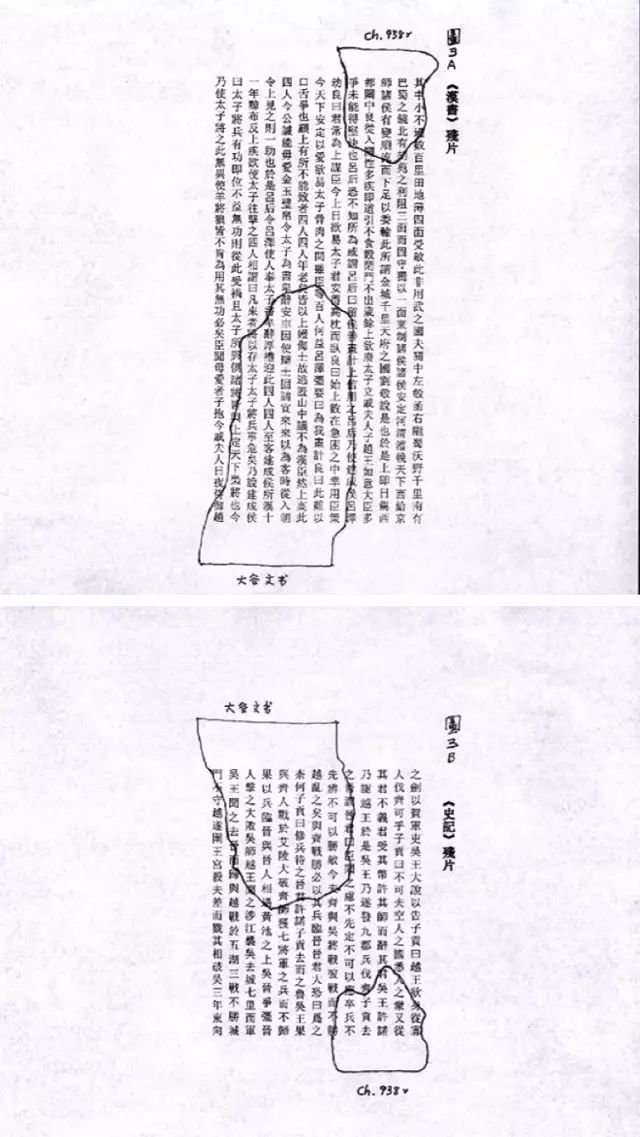 Ch. 938r
圖3A 《漢書》殘片
其中小不過數百里田地薄四面受敵此非用武之國夫關中左殽函右隴蜀沃野千里南有
巴蜀之饒北有胡苑之利阻三面而固守獨以一面東制諸侯諸侯安定河渭漕輓天下西給京
師諸侯有變順流而下足以委輸此所謂金城千里天府之國劉敬說是也於是上即日駕西
都關中良從入關性多疾即道引不食穀閉門不出歲餘上欲廢太子立戚夫人子趙王如意大臣多
爭未能得堅決也呂后恐不知所為或謂呂后曰留侯善畫計上信用之呂后乃使建成侯呂澤
劫良曰君常為上謀臣今上日欲易太子君安得高枕而臥良曰始上數在急困之中幸用臣策
今天下安定以愛欲易太子骨肉之間雖臣等百人何益呂澤彊要曰為我畫計良曰此難以
口舌爭也顧上有所不能致者四人四人年老矣皆以上嫚侮士故逃匿山中議不為漢臣然上高此
四人今公誠能毋愛金玉璧帛令太子為書卑辭安車因使辯士固請宜來來以為客時從入朝
令上見之則一助也於是呂后令呂澤使人奉太子書卑辭厚禮迎此四人四人至客建成侯所漢十
一年黥布反上疾欲使太子往擊之四人相謂曰凡來者將以存太子太子將兵事危矣乃說建成侯
曰太子將兵有功即位不益無功則從此受禍且太子所與俱諸將皆與上定天下梟將也今
乃使太子將之此無異使羊將狼皆不肯為用其無功必矣臣聞母愛者子抱今戚夫人日夜侍御趙
大谷文书
大谷文书
圖3B 《史記》殘片
之劍以賀軍吏吳王大說以告子貢曰越王欲身從寡
人伐齊可乎子貢曰不可夫空人之國悉人之衆又從
其君不義君受其幣許其師而辭其君吳王許諾
乃謝越王於是吳王乃遂發九郡兵伐齊子貢去
之晉謂晉君曰臣聞之慮不先定不可以應卒兵不
先辨不可以勝敵今夫齊與吳將戰彼戰而不勝
越亂之矣與齊戰勝必以其兵臨晉晉君大恐曰為之
柰何子貢曰修兵待之晉君許諾子貢去而之魯吳王果
與齊人戰於艾陵大破齊師獲七將軍之兵而不歸
果以兵臨晉與晉人相遇黃池之上吳晉爭彊晉
人擊之大敗吳師越王聞之涉江襲吳去城七里而軍
吳王聞之去晉而歸與越戰於五湖三戰不勝城
門不守越遂圍王宮殺夫差而戮其相破吳三年東向
Ch. 938v